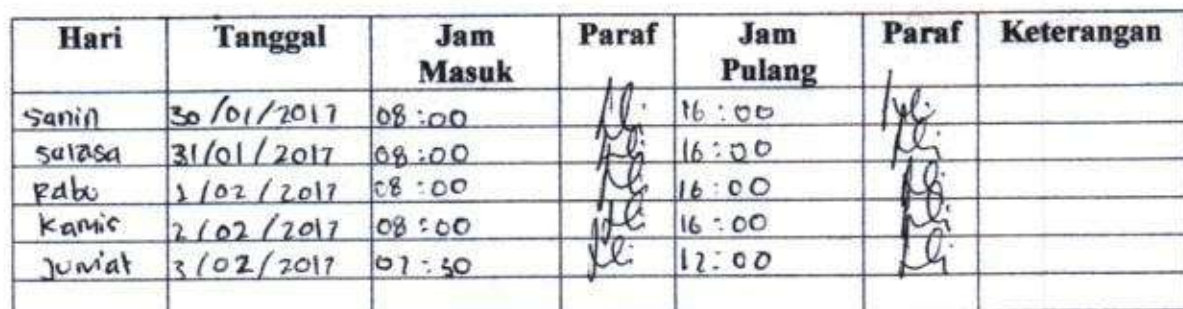 Hari Tanggal Jam Masuk Paraf Jam Pulang Paraf Keterangan
Senin 30/01/2017 08:00 16:00
Selasa 31/01/2017 08:00 16:00
Rabu 1/02/2017 08:00 16:00
Kamis 2/02/2017 08:00 16:00
Jum'at 3/02/2017 07:30 12:00